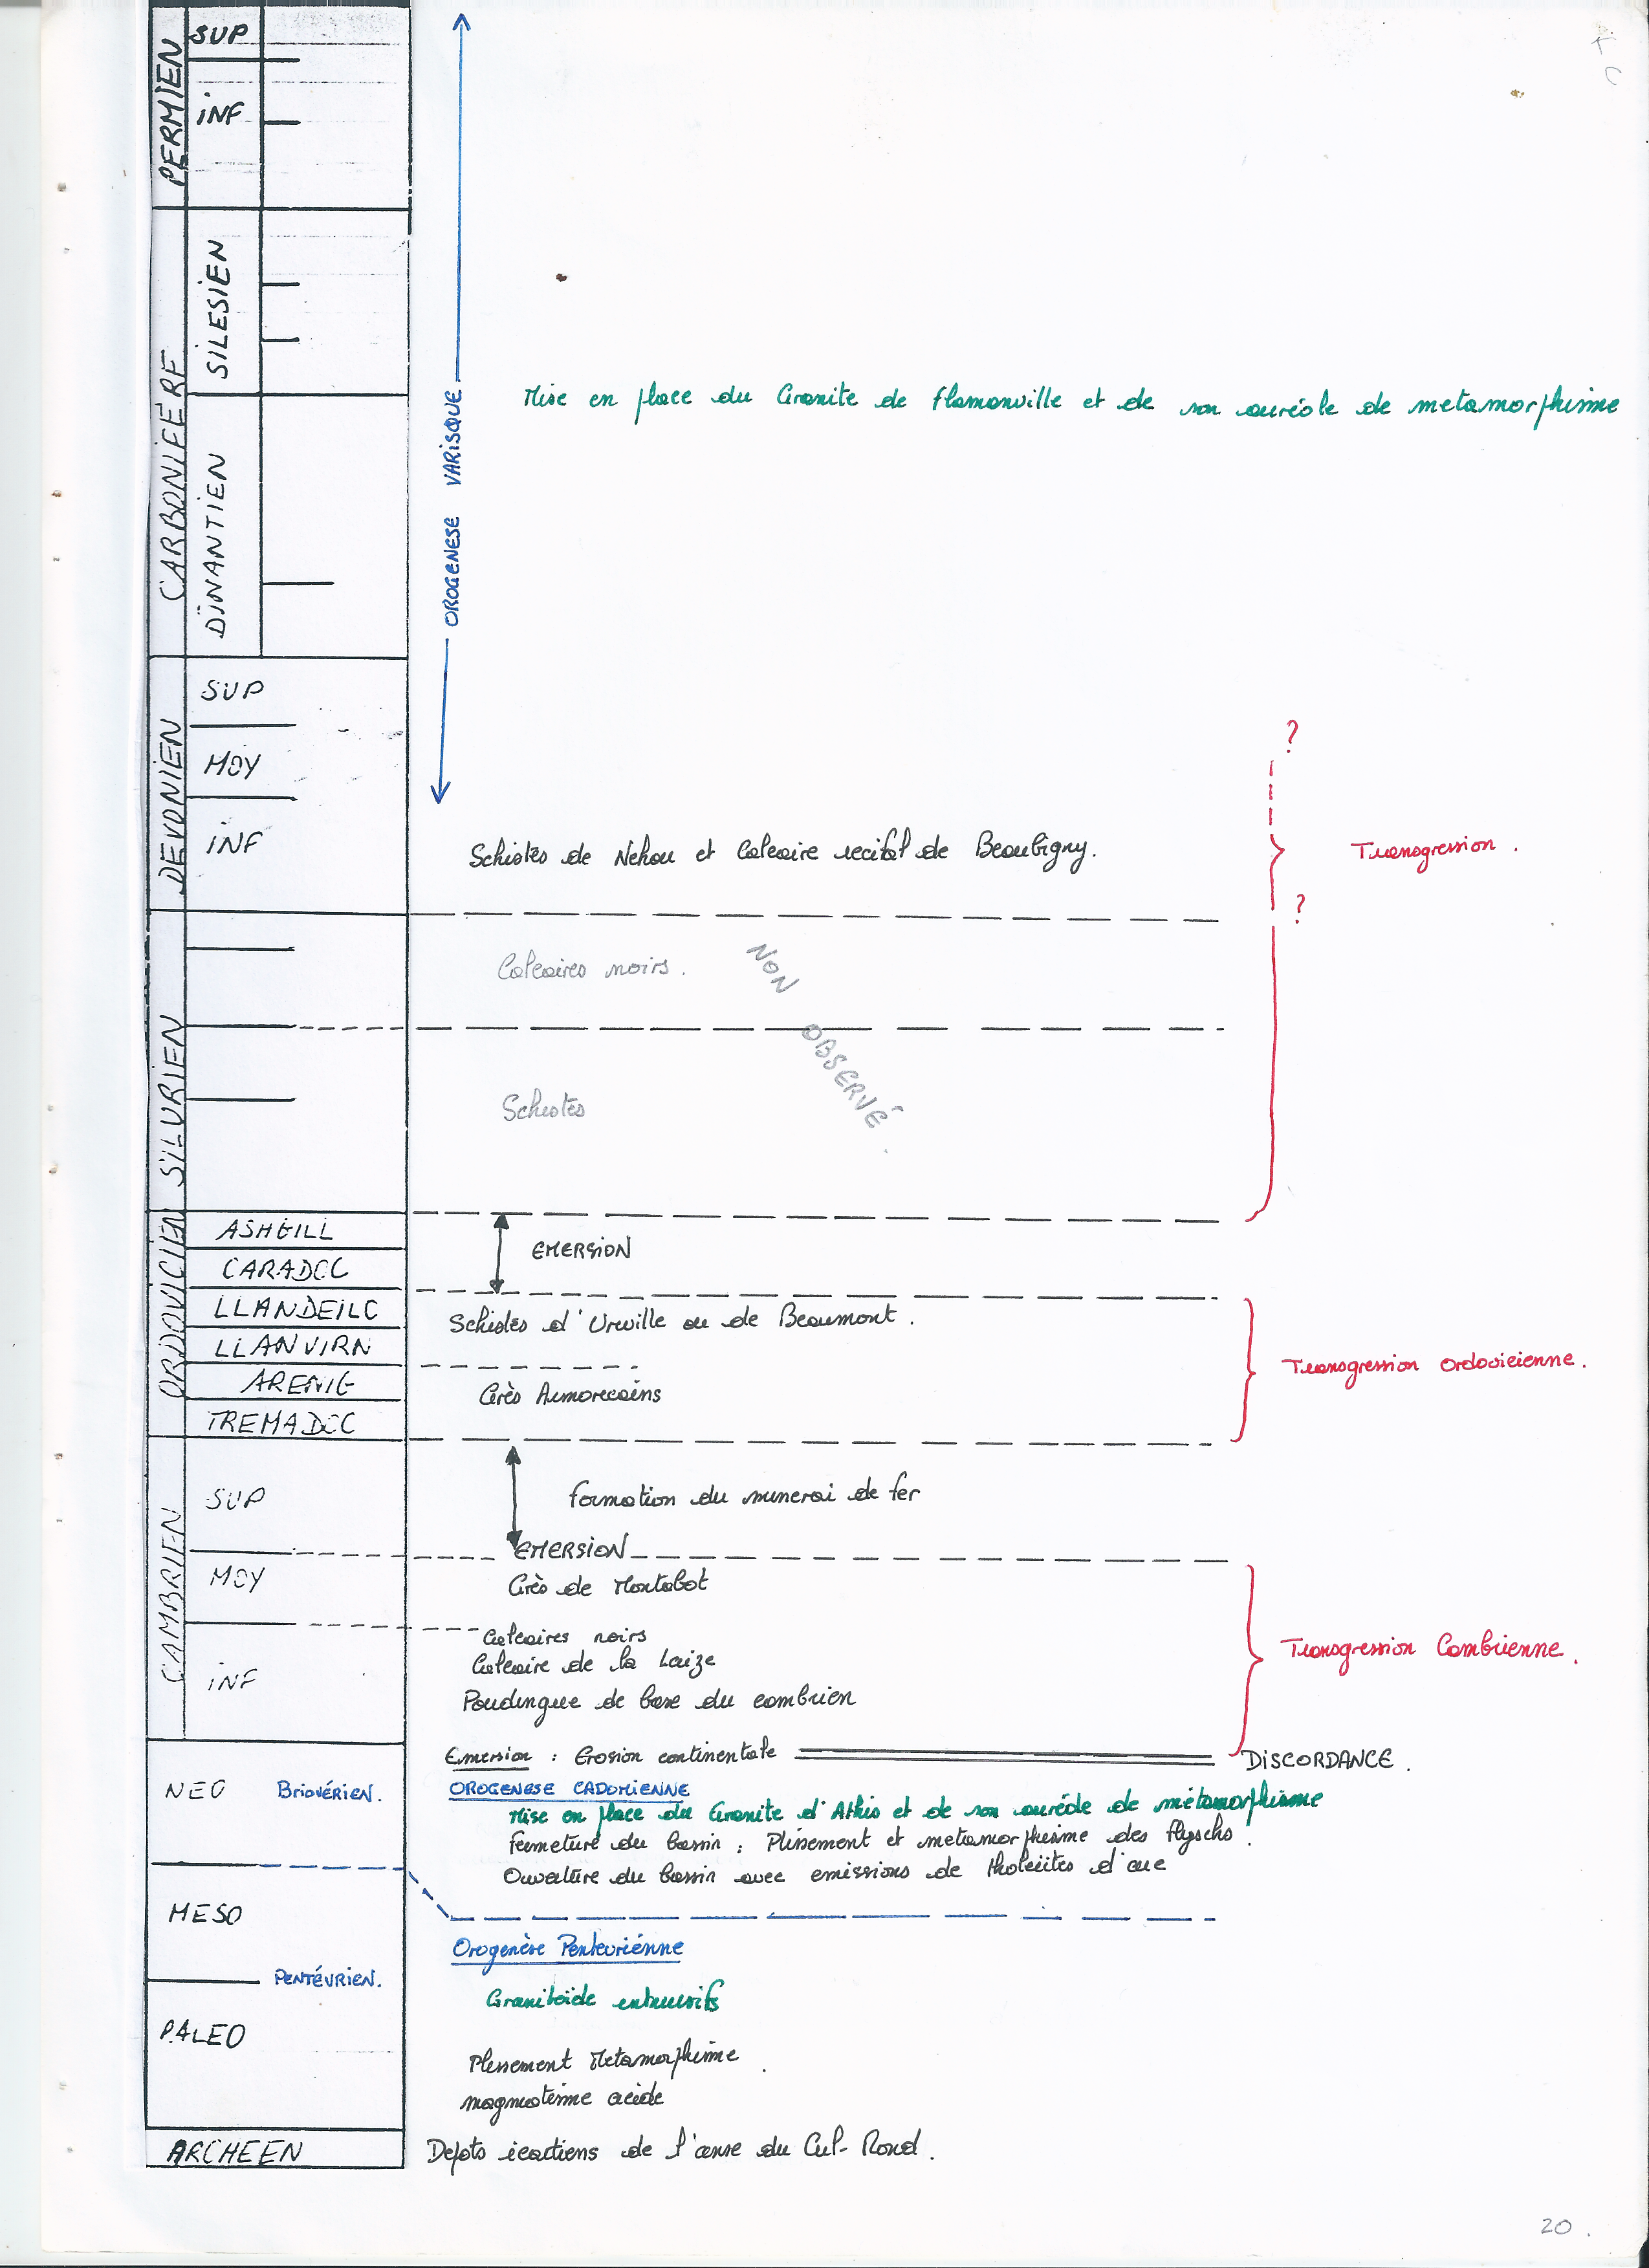 PERMIEN
SUP
INF
CARBONIFERE
SILESIEN
DINANTIEN
OROGENESE VARISQUE
Mise en place du Granite de Flamanville et de son auréole de metamorphisme
DEVONIEN
SUP
MOY
INF
Schistes de Nehou et Calcaire recifal de Beaubigny.
?
?
Transgression.
SILURIEN
Calcaires noirs.
NON OBSERVÉ.
Schistes
ORDOVICIEN
ASHGILL
CARADOC
EMERSION
LLANDEILO
Schistes d'Urville ou de Beaumont.
LLANVIRN
ARENIG
Grès Armoricains
Transgression Ordovicienne.
TREMADOC
CAMBRIEN
SUP
Formation du minerai de fer
EMERSION
MOY
Grès de Montabot
Calcaires noirs
Calcaire de la Laize
Transgression Cambrienne.
INF
Poudingue de base du cambrien
Emersion : Erosion continentale
DISCORDANCE.
NEO
Briovérien.
OROGENESE CADOMIENNE
Mise en place du Granite d'Athis et de son auréole de métamorphisme
Fermeture du bassin : Plissement et metamorphisme des flyschs.
Ouverture du bassin avec emissions de tholeiites d'arc
MESO
Orogenèse Pentevriénne
PENTÉVRIEN.
Granitoïde intrusifs
PALEO
Plissement Metamorphisme.
magmatisme acide
ARCHEEN
Depots icartiens de l'anse du Cul-Rond.
20.